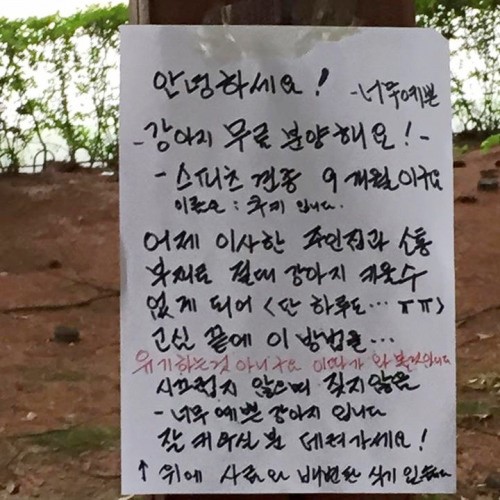 안녕하세요!
-너무예쁜
-강아지 무료 분양해요!-
-스피츠 견종 9개월이구요
이름은 : 쿠키 입니다.
어제 이사한 주인집과 소통
부재로 절대 강아지 키울수
없게 되어 <단 하루도... ㅠㅠ>
고심 끝에 이 방법을...
유기하는것 아니구요 이따가 와 볼것입니다
시끄럽지 않으며 짖지않음
-너무 예쁜 강아지 입니다
잘 키우실 분 데려가세요!
↑ 위에 사료와 배변판 식기 있습니다